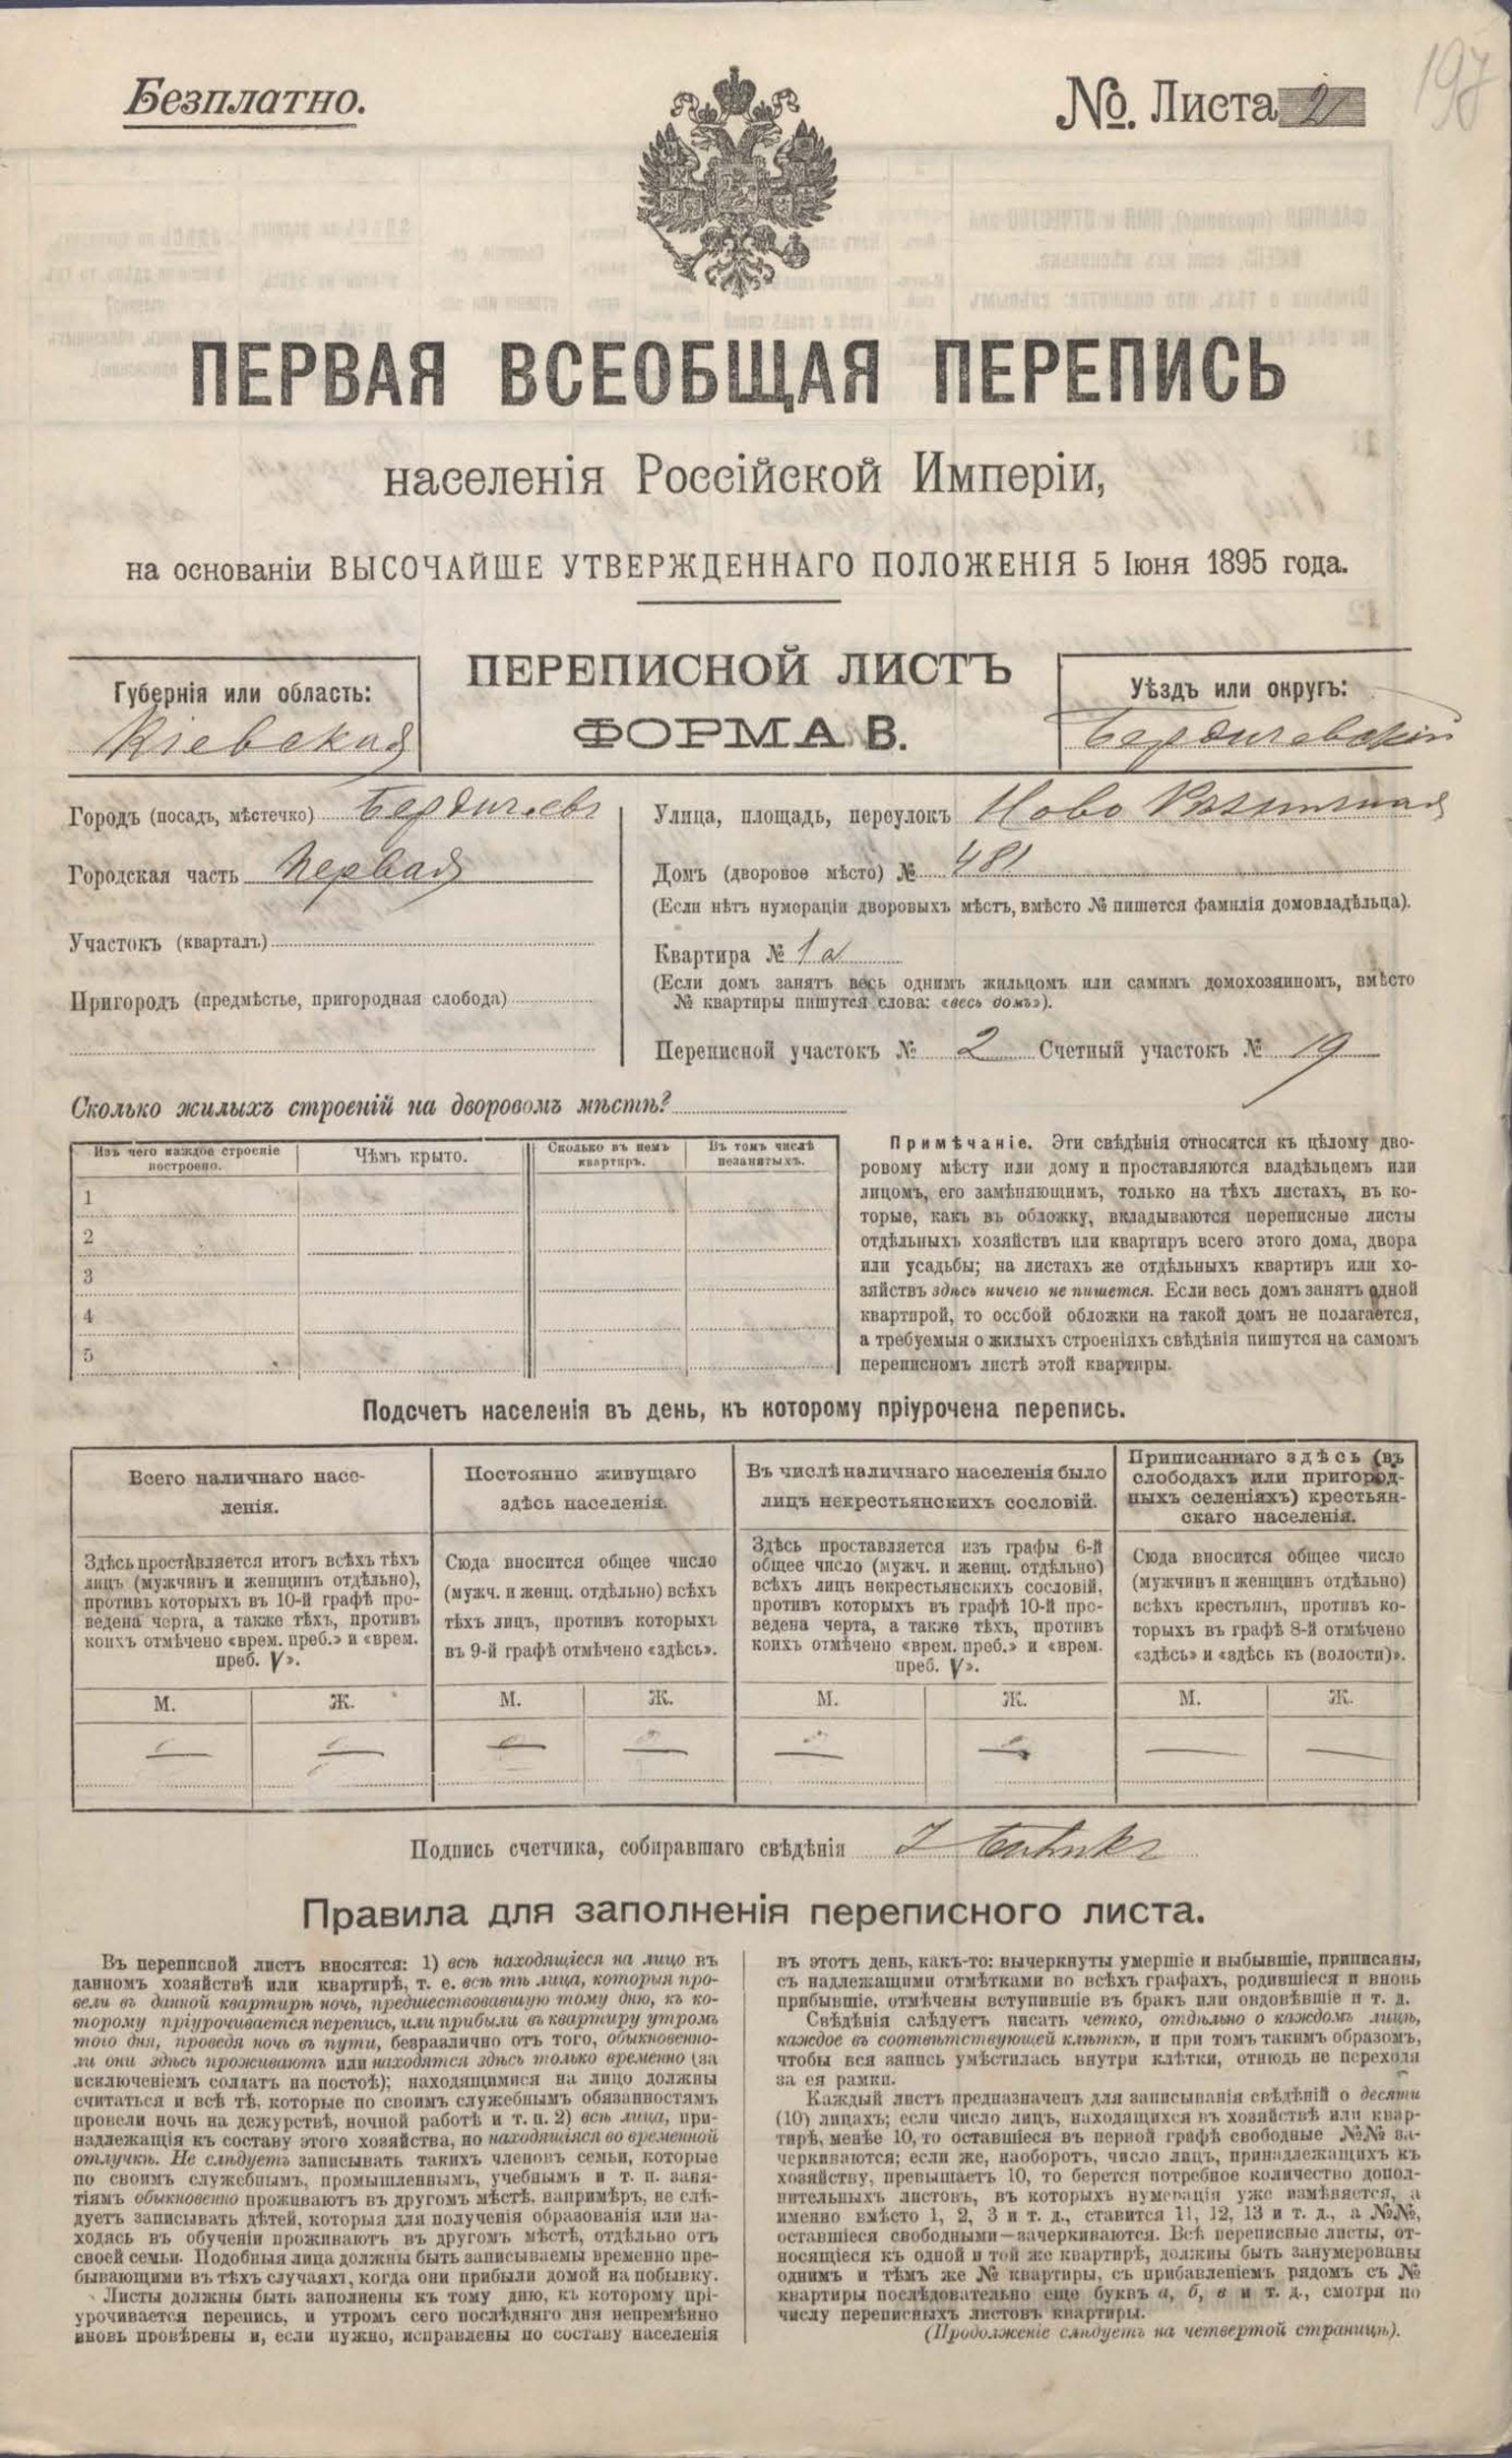 197
Безплатно.
№. Листа 2
ПЕРВАЯ ВСЕОБЩАЯ ПЕРЕПИСЬ
населенія Россійской Имперіи,
на основаніи ВЫСОЧАЙШЕ УТВЕРЖДЕННАГО ПОЛОЖЕНІЯ 5 Іюня 1895 года.
ПЕРЕПИСНОЙ ЛИСТЪ
ФОРМА В.
Губернія или область:
Кіевская
Уѣздъ или округъ:
Бердичевскій
Городъ (посадъ, мѣстечко) Бердичевъ
Городская часть Первая
Участокъ (кварталъ)
Пригородъ (предмѣстье, пригородная слобода)
Улица, площадь, переулокъ Ново
Домъ (дворовое мѣсто) № 481
(Если нѣтъ нумераціи дворовыхъ мѣстъ, вмѣсто № пишется фамилія домовладѣльца).
Квартира № 1а
(Если домъ занятъ весь однимъ жильцомъ или самимъ домохозяиномъ, вмѣсто
№ квартиры пишутся слова: «весь домъ»).
Переписной участокъ № 2 Счетный участокъ № 19
Сколько жилыхъ строеній на дворовомъ мѣстѣ?
Изъ чего каждое строеніе
построено.
Чѣмъ крыто.
Сколько въ немъ
квартиръ.
Въ томъ числѣ
незанятыхъ.
1
2
3
4
5
Примѣчаніе. Эти свѣдѣнія относятся къ цѣлому дво-
ровому мѣсту или дому и проставляются владѣльцемъ или
лицомъ, его замѣняющимъ, только на тѣхъ листахъ, въ ко-
торые, какъ въ обложку, вкладываются переписные листы
отдѣльныхъ хозяйствъ или квартиръ всего этого дома, двора
или усадьбы; на листахъ же отдѣльныхъ квартиръ или хо-
зяйствъ здѣсь ничего не пишется. Если весь домъ занятъ одной
квартирой, то особой обложки на такой домъ не полагается,
а требуемыя о жилыхъ строеніяхъ свѣдѣнія пишутся на самомъ
переписномъ листѣ этой квартиры.
Подсчетъ населенія въ день, къ которому пріурочена перепись.
Всего наличнаго насе-
ленія.
Здѣсь проставляется итогъ всѣхъ тѣхъ
лицъ (мужчинъ и женщинъ отдѣльно),
противъ которыхъ въ 10-й графѣ про-
ведена черта, а также тѣхъ, противъ
коихъ отмѣчено «врем. преб.» и «врем.
преб. V».
М. Ж.
— —
Постоянно живущаго
здѣсь населенія.
Сюда вносится общее число
(мужч. и женщ. отдѣльно) всѣхъ
тѣхъ лицъ, противъ которыхъ
въ 9-й графѣ отмѣчено «здѣсь».
М. Ж.
— —
Въ числѣ наличнаго населенія было
лицъ некрестьянскихъ сословій.
Здѣсь проставляется изъ графы 6-й
общее число (мужч. и женщ. отдѣльно)
всѣхъ лицъ некрестьянскихъ сословій,
противъ которыхъ въ графѣ 10-й про-
ведена черта, а также тѣхъ, противъ
коихъ отмѣчено «врем. преб.» и «врем.
преб. V».
М. Ж.
— —
Приписаннаго здѣсь (въ
слободахъ или пригород-
ныхъ селеніяхъ) крестьян-
скаго населенія.
Сюда вносится общее число
(мужчинъ и женщинъ отдѣльно)
всѣхъ крестьянъ, противъ ко-
торыхъ въ графѣ 8-й отмѣчено
«здѣсь» и «здѣсь къ (волости)».
М. Ж.
— —
Подпись счетчика, собиравшаго свѣдѣнія
Правила для заполненія переписного листа.
Въ переписной листъ вносятся: 1) всѣ находящіеся на лицо въ
данномъ хозяйствѣ или квартирѣ, т. е. всѣ тѣ лица, которыя про-
вели въ данной квартирѣ ночь, предшествовавшую тому дню, къ ко-
торому пріурочивается перепись, или прибыли въ квартиру утромъ
того дня, проведя ночь въ пути, безразлично отъ того, обыкновенно-
ли они здѣсь проживаютъ или находятся здѣсь только временно (за
исключеніемъ солдатъ на постоѣ); находящимися на лицо должны
считаться и всѣ тѣ, которые по своимъ служебнымъ обязанностямъ
провели ночь на дежурствѣ, ночной работѣ и т. п. 2) всѣ лица, при-
надлежащія къ составу этого хозяйства, но находящіяся во временной
отлучкѣ. Не слѣдуетъ записывать такихъ членовъ семьи, которые
по своимъ служебнымъ, промышленнымъ, учебнымъ и т. п. заня-
тіямъ обыкновенно проживаютъ въ другомъ мѣстѣ, напримѣръ, не слѣ-
дуетъ записывать дѣтей, которыя для полученія образованія или на-
ходясь въ обученіи проживаютъ въ другомъ мѣстѣ, отдѣльно отъ
своей семьи. Подобныя лица должны быть записываемы временно пре-
бывающими въ тѣхъ случаяхъ, когда они прибыли домой на побывку.
Листы должны быть заполнены къ тому дню, къ которому прі-
урочивается перепись, и утромъ сего послѣдняго дня непремѣнно
вновь провѣрены и, если нужно, исправлены по составу населенія
въ этотъ день, какъ-то: вычеркнуты умершіе и выбывшіе, приписаны,
съ надлежащими отмѣтками во всѣхъ графахъ, родившіеся и вновь
прибывшіе, отмѣчены вступившіе въ бракъ или овдовѣвшіе и т. д.
Свѣдѣнія слѣдуетъ писать четко, отдѣльно о каждомъ лицѣ,
каждое въ соотвѣтствующей клѣткѣ, и при томъ такимъ образомъ,
чтобы вся запись умѣстилась внутри клѣтки, отнюдь не переходя
за ея рамки.
Каждый листъ предназначенъ для записыванія свѣдѣній о десяти
(10) лицахъ; если число лицъ, находящихся въ хозяйствѣ или квар-
тирѣ, менѣе 10, то оставшіеся въ первой графѣ свободные №№ за-
черкиваются; если же, наоборотъ, число лицъ, принадлежащихъ къ
хозяйству, превышаетъ 10, то берется потребное количество допол-
нительныхъ листовъ, въ которыхъ нумерація уже измѣняется, а
именно вмѣсто 1, 2, 3 и т. д., ставится 11, 12, 13 и т. д., а №№,
оставшіеся свободными—зачеркиваются. Всѣ переписные листы, от-
носящіеся къ одной и той же квартирѣ, должны быть занумерованы
однимъ и тѣмъ же № квартиры, съ прибавленіемъ рядомъ съ №
квартиры послѣдовательно еще буквъ а, б, в и т. д., смотря по
числу переписныхъ листовъ квартиры.
(Продолженіе слѣдуетъ на четвертой страницѣ).